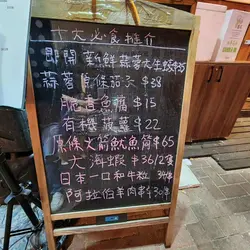 十大必食推介
即開新鮮蒜蓉大生蠔$35
蒜蓉原條茄子 $38
脆意魚福 $15
有機菠蘿 $22
原條火箭魷魚筒 $65
大海蝦 $36/2隻
日本一口和牛粒 39/件
阿拉伯羊肉串 $30/件